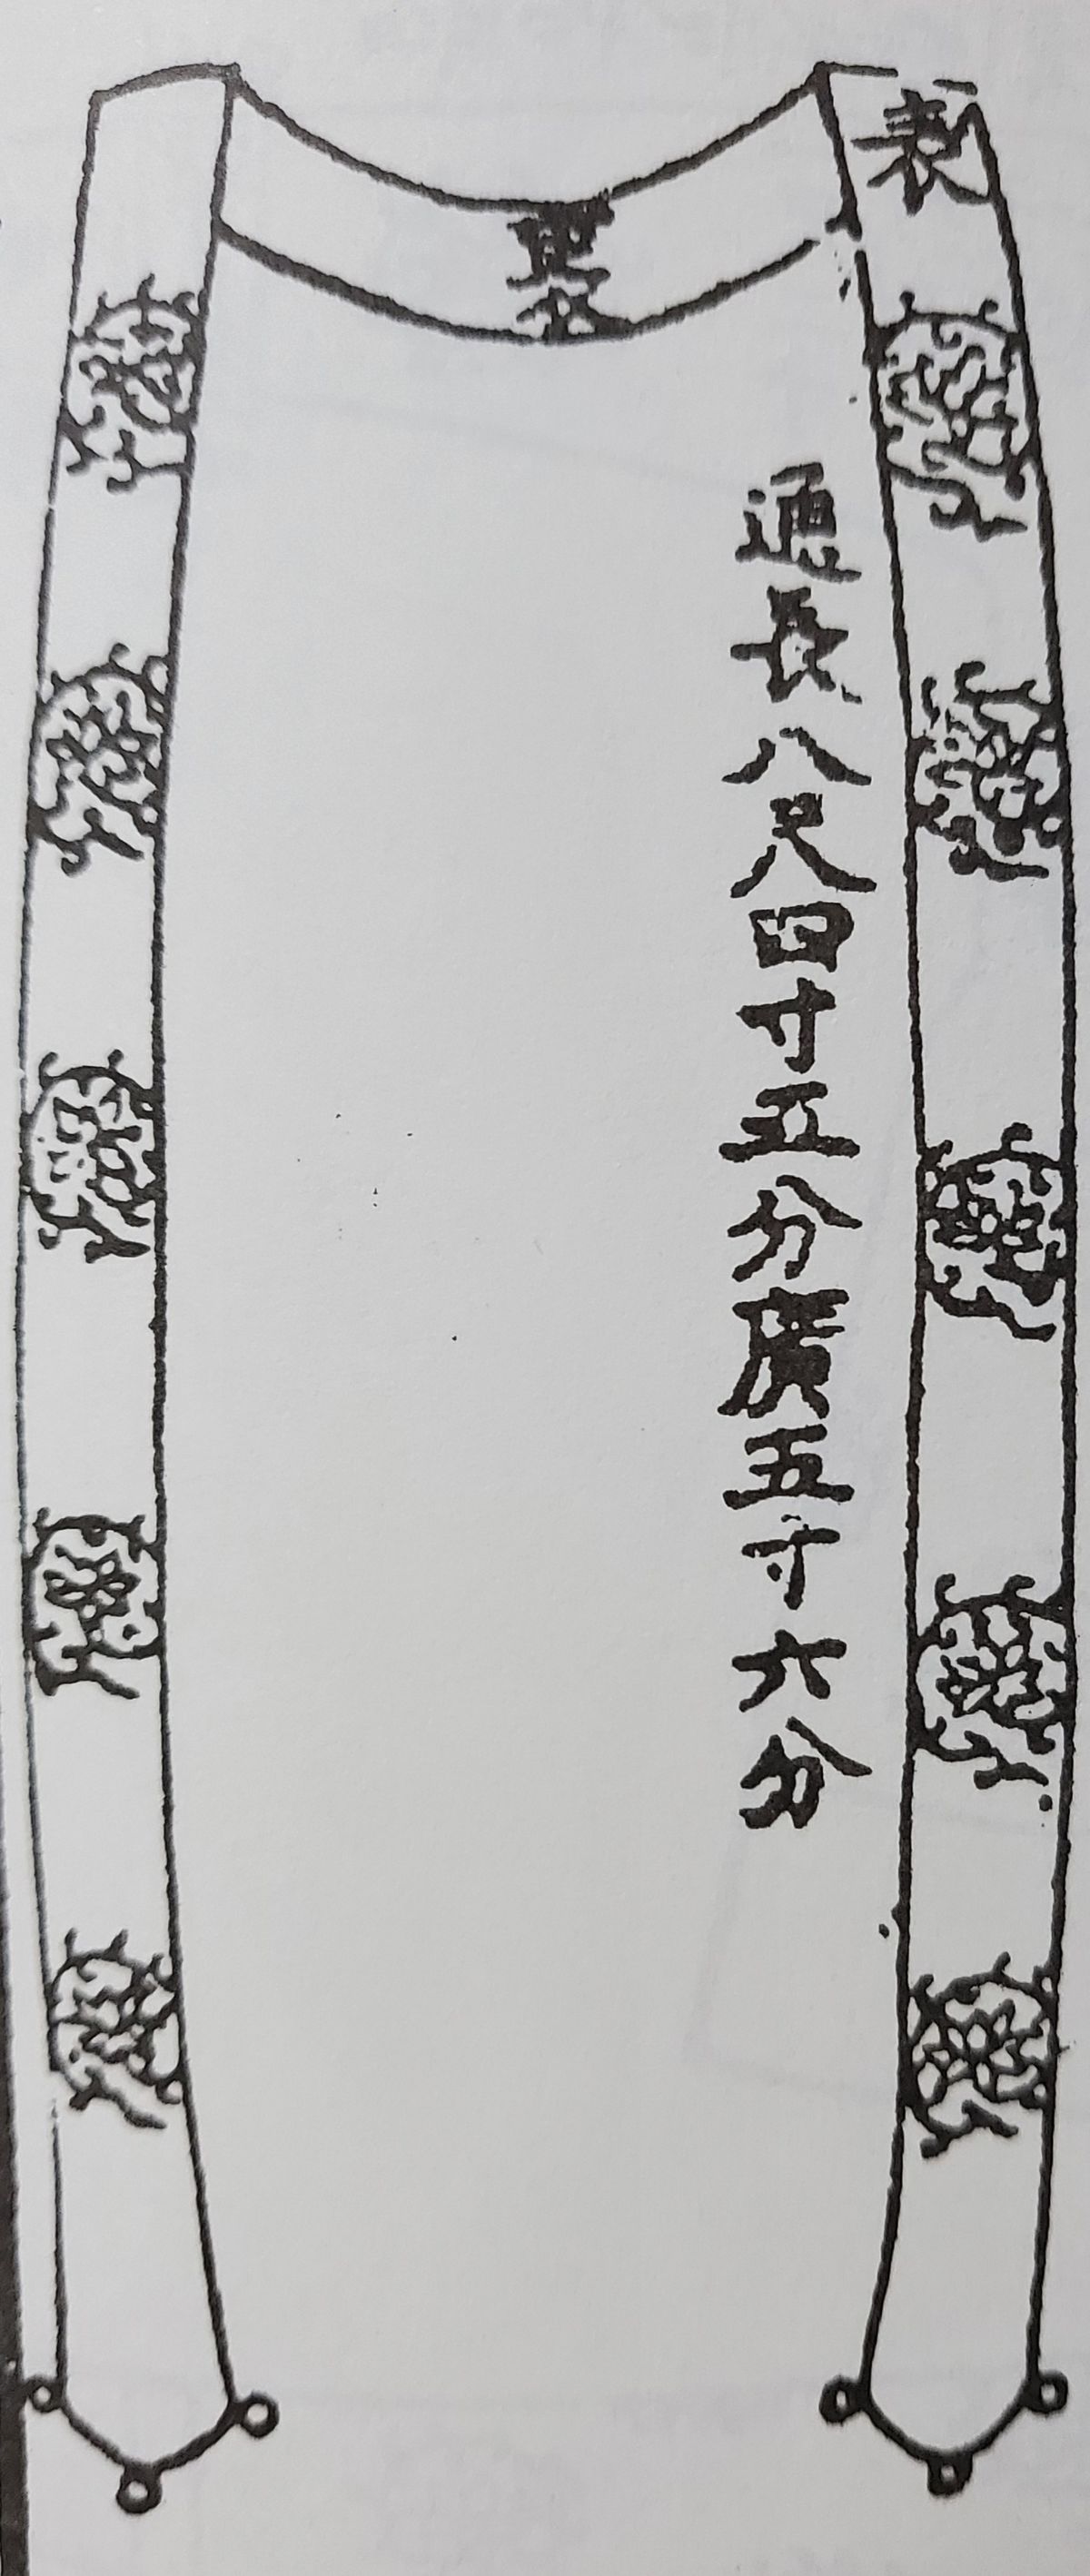 通長八尺四寸五分廣五寸六分